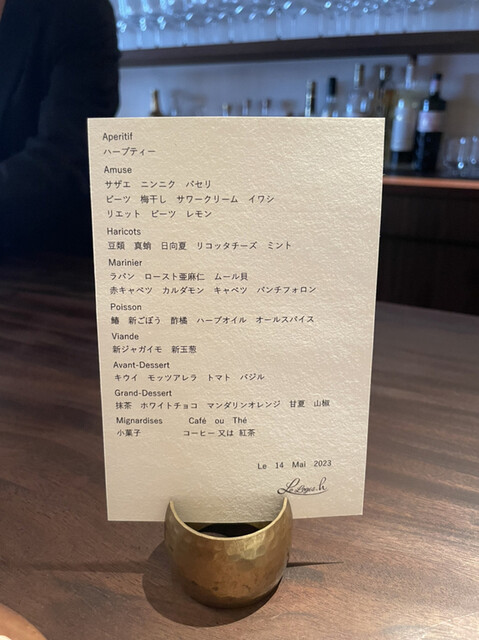 Aperitif
ハーブティー
Amuse
サザエ ニンニク パセリ
ビーツ 梅干し サワークリーム イワシ
リエット ビーツ レモン
Haricots
豆類 真蛸 日向夏 リコッタチーズ ミント
Marinier
ラパン ロースト亜麻仁 ムール貝
赤キャベツ カルダモン キャベツ パンチフォロン
Poisson
鰆 新ごぼう 酢橘 ハーブオイル オールスパイス
Viande
新ジャガイモ 新玉葱
Avant-Dessert
キウイ モッツアレラ トマト バジル
Grand-Dessert
抹茶 ホワイトチョコ マンダリンオレンジ 甘夏 山椒
Mignardises Café ou Thé
小菓子 コーヒー 又は 紅茶
Le 14 Mai 2023